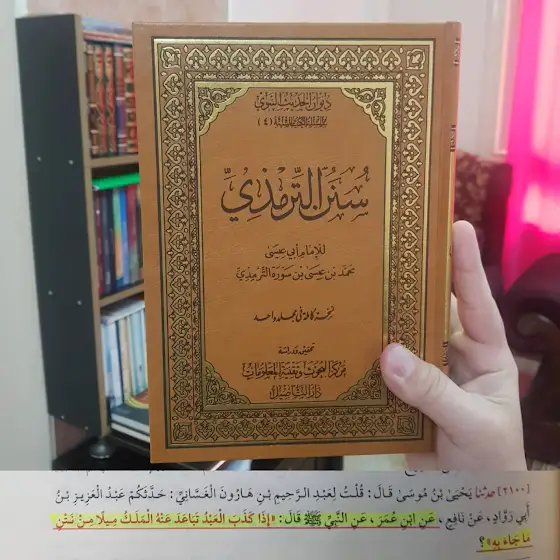 ديوان الحديث النبوي
(٤)
سُنَنُ التِّرْمِذِيِّ
للإمام أبي عيسى
محمد بن عيسى بن سورة الترمذي
نسخة كاملة في مجلد واحد
تحقيق ودراسة
مركز البحوث وتقنية المعلومات
دار التأصيل
[٢١٠٠] حدثنا يَحْيَى بْنُ مُوسَى قَالَ: قُلْتُ لِعَبْدِ الرَّحِيمِ بْنِ هَارُونَ الْغَسَّانِيِّ: حَدَّثَكُمْ عَبْدُ الْعَزِيزِ بْنُ
أَبِي رَوَّادٍ، عَنْ نَافِعٍ، عَنِ ابْنِ عُمَرَ، عَنِ النَّبِيِّ ﷺ قَالَ: «إِذَا كَذَبَ الْعَبْدُ تَبَاعَدَ عَنْهُ الْمَلَكُ مِيلًا مِنْ نَتْنِ
مَا جَاءَ بِهِ»؟